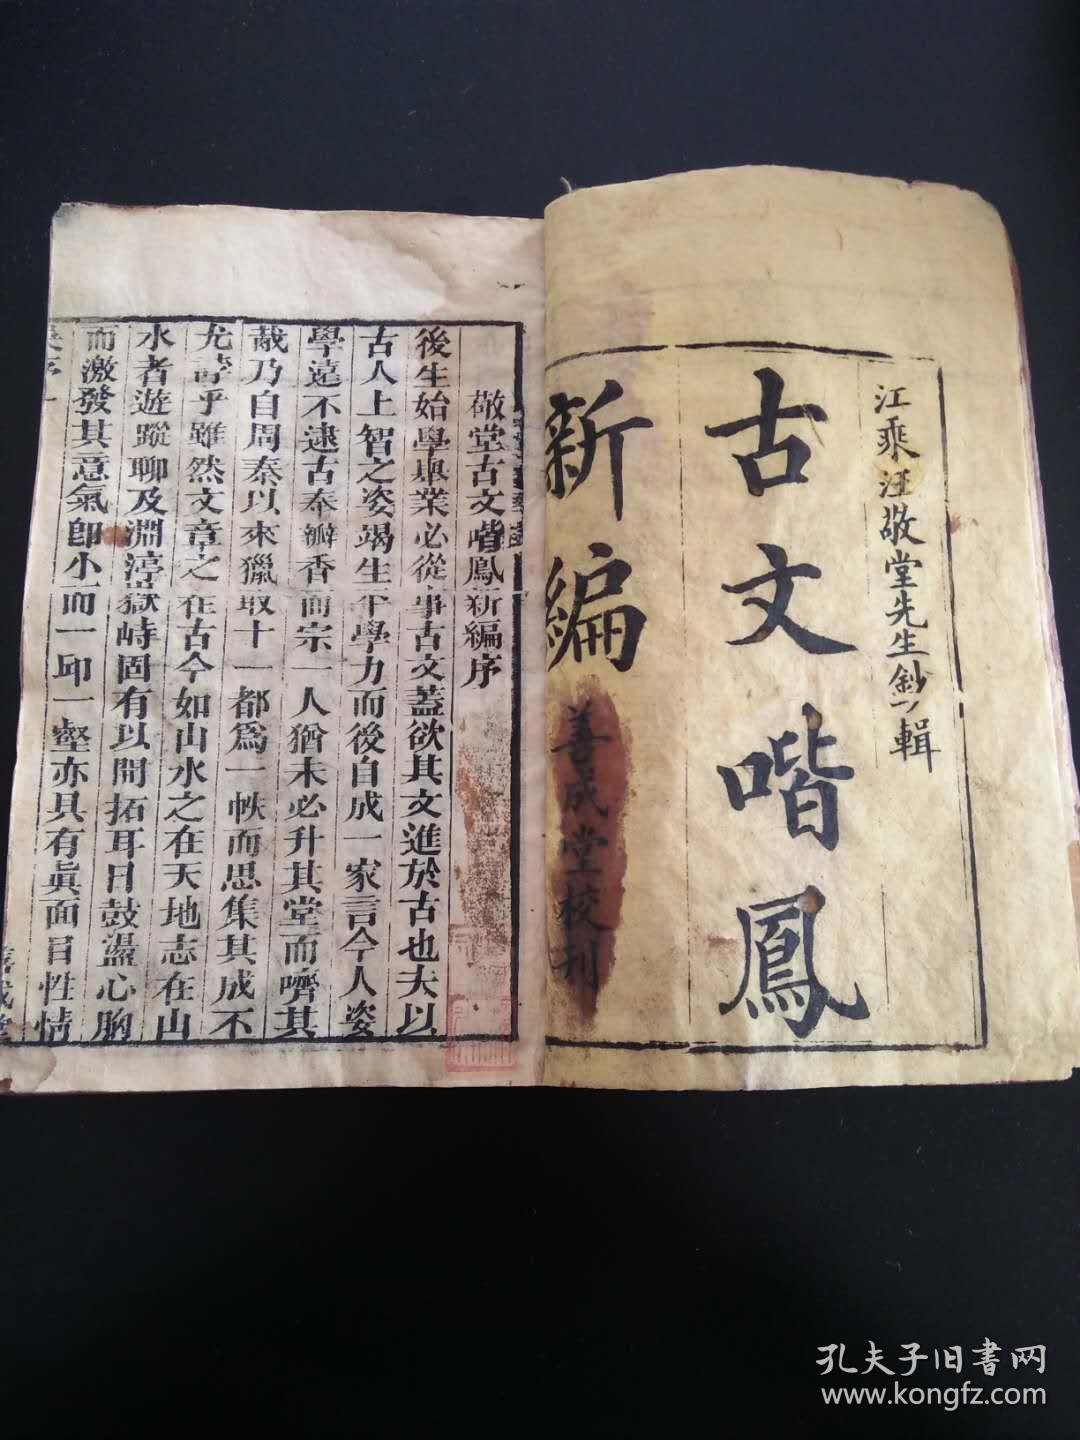 江乘汪敬堂先生鈔輯
古文喈鳳
新編
善成堂校刊
敬堂古文喈鳳新編序
後生始學舉業必從事古文蓋欲其文進於古也夫以
古人上智之姿竭生平學力而後自成一家言今人姿
學遠不逮古奉瓣香而宗一人猶未必升其堂而嚌其
胾乃自周秦以來獵取十一都爲一帙而思集其成不
尤誇乎雖然文章之在古今如山水之在天地志在山
水者遊蹤聊及淵渟嶽峙固有以開拓耳目鼓盪心胸
而激發其意氣卽小而一邱一壑亦具有眞面目性情
善成堂
孔夫子旧書网
www.kongfz.com